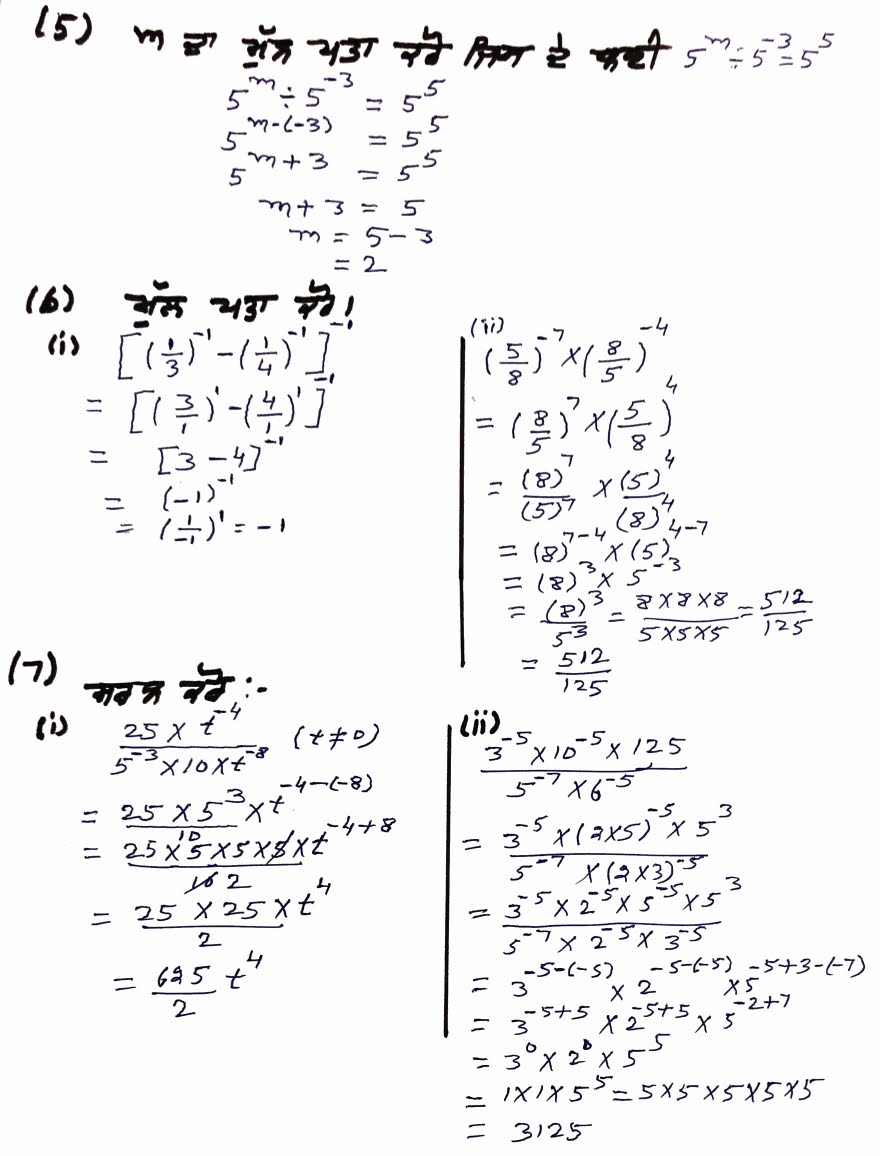 (5) m ਦਾ ਮੁੱਲ ਪਤਾ ਕਰੋ ਜਿਸ ਦੇ ਲਈ 5^m ÷ 5^-3 = 5^5
5^m ÷ 5^-3 = 5^5
5^m-(-3) = 5^5
5^m+3 = 5^5
m + 3 = 5
m = 5 - 3
= 2
(6) ਮੁੱਲ ਪਤਾ ਕਰੋ।
(i) [(1/3)^-1 - (1/4)^-1]^-1
= [(3/1)^1 - (4/1)^1]^-1
= [3 - 4]^-1
= (-1)^-1
= (1/-1)^1 = -1
(ii) (5/8)^-7 × (8/5)^-4
= (8/5)^7 × (5/8)^4
= (8)^7/(5)^7 × (5)^4/(8)^4
= (8)^7-4 × (5)^4-7
= (8)^3 × 5^-3
= (8)^3/5^3 = 8×8×8/5×5×5 = 512/125
= 512/125
(7) ਸਰਲ ਕਰੋ :-
(i) 25 × t^-4/5^-3 × 10 × t^-8 (t ≠ 0)
= 25 × 5^3 × t^-4-(-8)/10
= 25 × 5 × 5 × 5 × t^-4+8/10 2
= 25 × 25 × t^4/2
= 625/2 t^4
(ii) 3^-5 × 10^-5 × 125/5^-7 × 6^-5
= 3^-5 × (2×5)^-5 × 5^3/5^-7 × (2×3)^-5
= 3^-5 × 2^-5 × 5^-5 × 5^3/5^-7 × 2^-5 × 3^-5
= 3^-5-(-5) × 2^-5-(-5) × 5^-5+3-(-7)
= 3^-5+5 × 2^-5+5 × 5^-2+7
= 3^0 × 2^0 × 5^5
= 1×1×5^5 = 5×5×5×5×5
= 3125